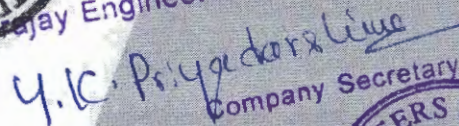 ajay Engineer
Y.K. Priyadarshine
Company Secretary
ERS